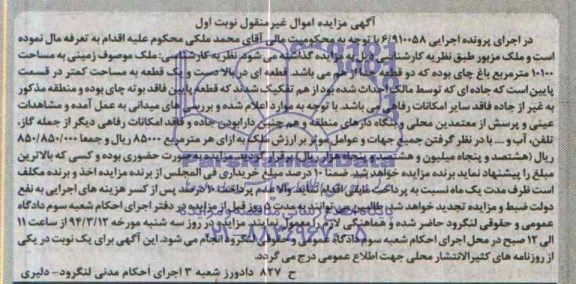 آگهی مزایده اموال غیرمنقول نوبت اول
در اجرای پرونده اجرایی ۶/۹۱۰۰۵۸ با توجه به محکومیت مالی آقای محمد ملکی محکوم علیه اقدام به تعرفه مال نموده
است و ملک مزبور طبق نظریه کارشناسی ذیل به مزایده گذاشته می شود. نظریه کارشناسی: ملک موصوف زمینی به مساحت
۱۰۱۰۰ مترمربع باغ چای بوده که دو قطعه جدا از هم می باشد. قطعه ای در بالا دست و یک قطعه به مساحت کمتر در قسمت
پایین است که جاده ای که توسط مالک احداث شده بود از هم تفکیک شدند که قطعه پایین فاقد بوته چای بوده و منطقه مذکور
به غیر از جاده فاقد سایر امکانات رفاهی می باشد. با توجه به موارد اعلام شده و بررسی های میدانی به عمل آمده و مشاهدات
عینی و پرسش از معتمدین محلی و بنگاه دارهای منطقه و هم چنین دارابودن جاده و فاقد امکانات رفاهی دیگر از جمله گاز،
تلفن، آب و .... با در نظر گرفتن جمیع جهات و عوامل موثر بر ارزش ملک به ازای هر مترمربع ۸۵۰۰۰ ریال و جمعا ۸۵۰/۸۵۰/۰۰۰
ریال (هشتصد و پنجاه میلیون و هشتصد و پنجاه هزار ریال) برقرار گردید. مزایده به صورت حضوری بوده و کسی که بالاترین
مبلغ را پیشنهاد نماید برنده مزایده خواهد شد. ضمنا ۱۰ درصد مبلغ خریداری فی المجلس از برنده مزایده اخذ و برنده مکلف
است ظرف مدت یک ماه نسبت به پرداخت مابقی اقدام نماید والا عدم پرداخت ۱۰ درصد پس از کسر هزینه های اجرایی به نفع
دولت ضبط و مزایده تجدید خواهد شد. طالبین می توانند به مدت ۵ روز قبل از مزایده در دفتر اجرای احکام شعبه سوم دادگاه
عمومی و حقوقی لنگرود حاضر شده و هماهنگی لازم را معمول نمایند. مزایده در روز سه شنبه مورخه ۹۴/۳/۱۲ از ساعت ۱۱
الی ۱۲ صبح در محل اجرای احکام شعبه سوم دادگاه عمومی و حقوقی لنگرود انجام می شود. این آگهی برای یک نوبت در یکی
از روزنامه های کثیرالانتشار محلی جهت اطلاع عمومی درج می گردد.
ح ۸۲۷ دادورز شعبه ۳ اجرای احکام مدنی لنگرود- دلیری